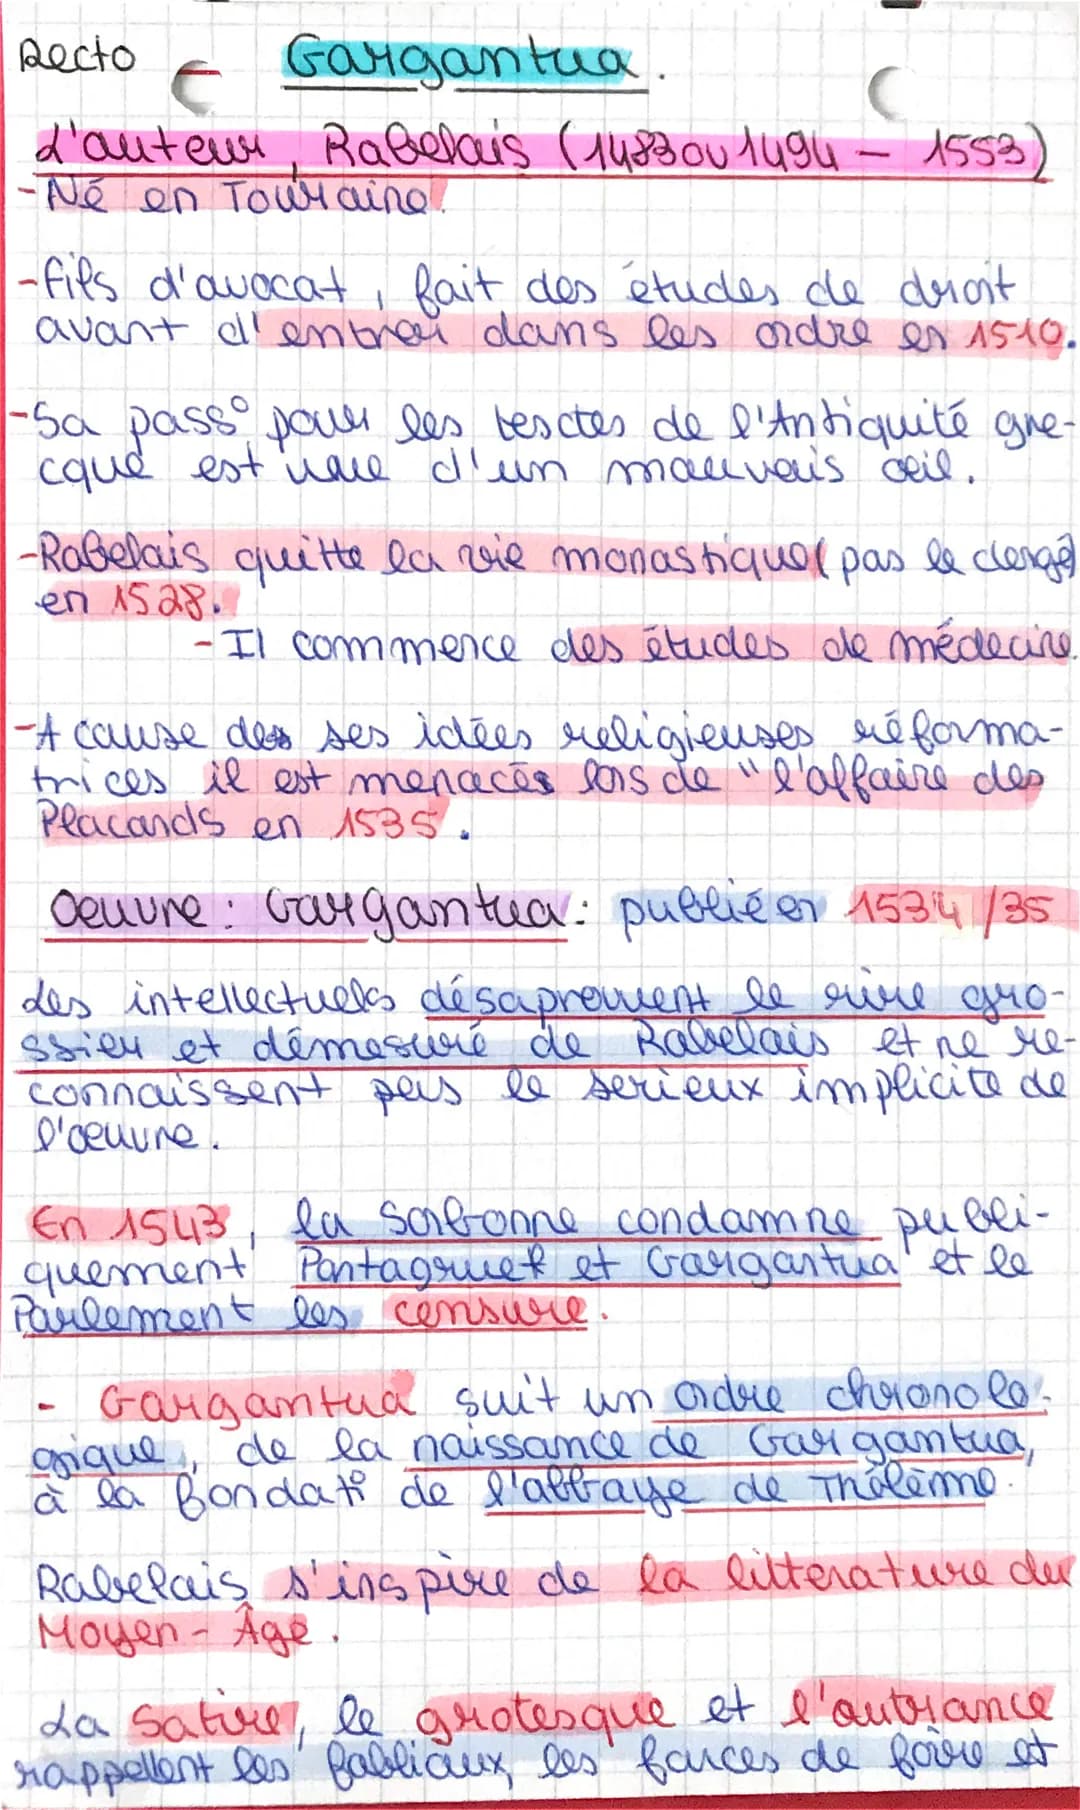 Recto
Gargantua.
L'auteur, Rabelais (1483 ou 1494 - 1553)
- Né en Touraine.
- fils d'avocat, fait des études de droit
avant d'entrer dans les ordre en 1510.
- Sa pass° pour les textes de l'Antiquité gre-
cque est vue d'un mauvais œil.
- Rabelais quitte la vie monastique (pas le clergé)
en 1528.
- Il commence des études de médecine.
- A cause des ses idées religieuses réforma-
trices il est menacés lors de "l'affaire des
Placards en 1535.
Oeuvre : Gargantua : publié en 1534/35
Les intellectuels désaprouvent le rire gro-
ssier et démesuré de Rabelais et ne re-
connaissent pas le serieux implicite de
l'œuvre.
En 1543, la Sorbonne condamne publi-
quement Pantagruel et Gargantua et le
Parlement les censure.
- Gargantua suit un ordre chronolo-
gique, de la naissance de Gargantua,
à la fondat° de l'abbaye de Thélème.
Rabelais s'inspire de la litterature du
Moyen-Âge.
La Satire, le grotesque et l'outrance
rappellent les fabliaux, les farces de foire et